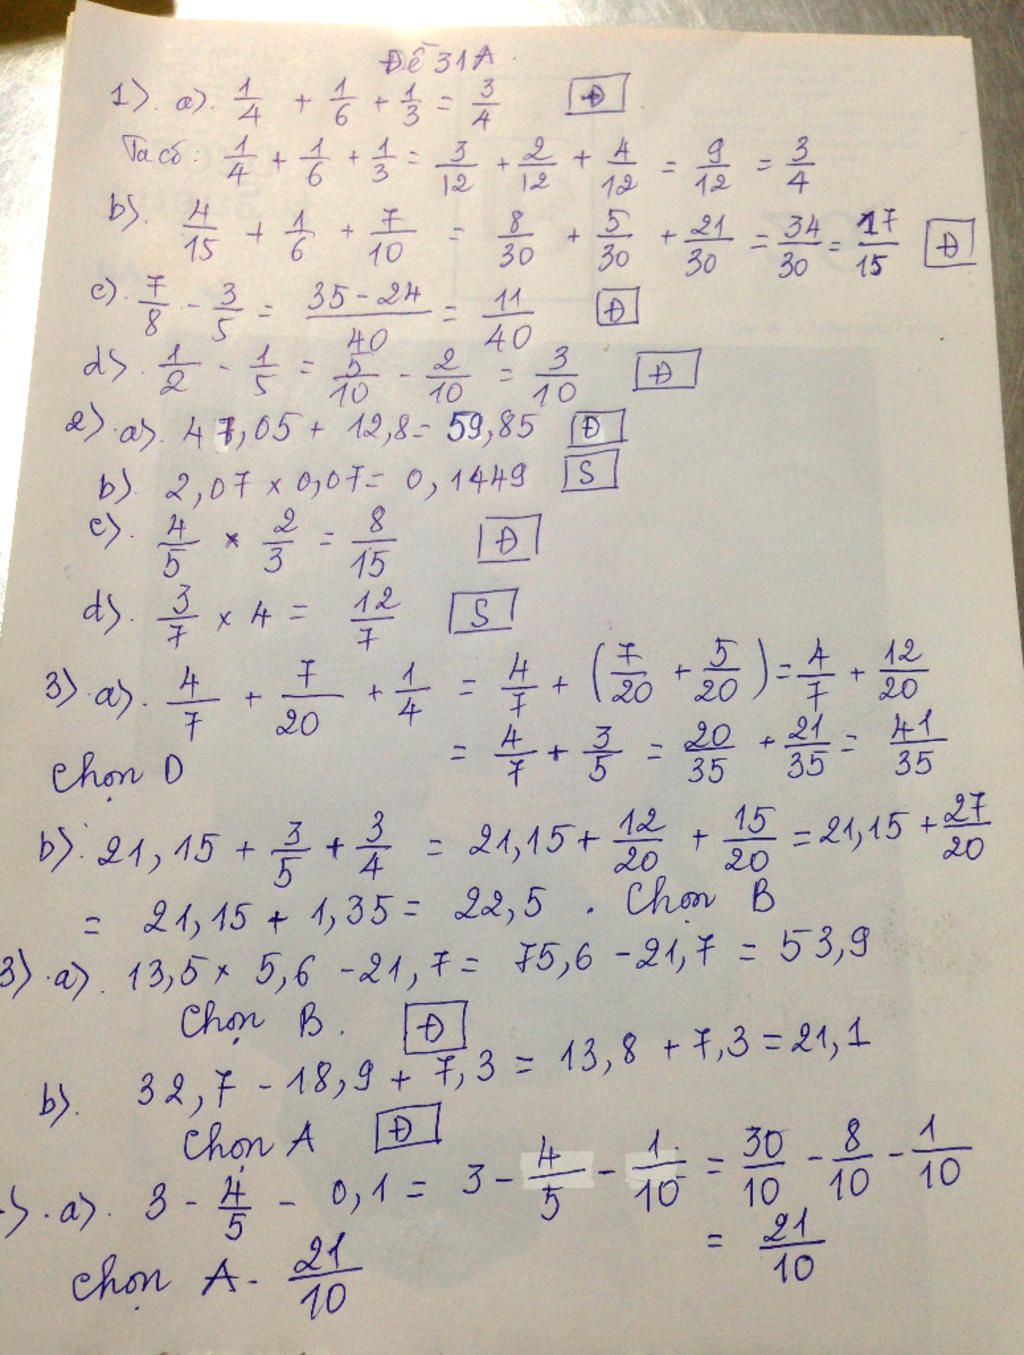 Đề 31A
1). a). 1/4 + 1/6 + 1/3 = 3/4 Đ
Ta có: 1/4 + 1/6 + 1/3 = 3/12 + 2/12 + 4/12 = 9/12 = 3/4
b). 4/15 + 1/6 + 7/10 = 8/30 + 5/30 + 21/30 = 34/30 = 17/15 Đ
c). 7/8 - 3/5 = 35-24/40 = 11/40 Đ
d). 1/2 - 1/5 = 5/10 - 2/10 = 3/10 Đ
2). a). 47,05 + 12,8 = 59,85 Đ
b). 2,07 x 0,07 = 0,1449 S
c). 4/5 x 2/3 = 8/15 Đ
d). 3/7 x 4 = 12/7 S
3). a). 4/7 + 7/20 + 1/4 = 4/7 + (7/20 + 5/20) = 4/7 + 12/20
= 4/7 + 3/5 = 20/35 + 21/35 = 41/35
Chọn D
b). 21,15 + 3/5 + 3/4 = 21,15 + 12/20 + 15/20 = 21,15 + 27/20
= 21,15 + 1,35 = 22,5 . Chọn B
3). a). 13,5 x 5,6 - 21,7 = 75,6 - 21,7 = 53,9
Chọn B. Đ
b). 32,7 - 18,9 + 7,3 = 13,8 + 7,3 = 21,1
Chọn A Đ
). a). 3 - 4/5 - 0,1 = 3 - 4/5 - 1/10 = 30/10 - 8/10 - 1/10
= 21/10
Chọn A - 21/10